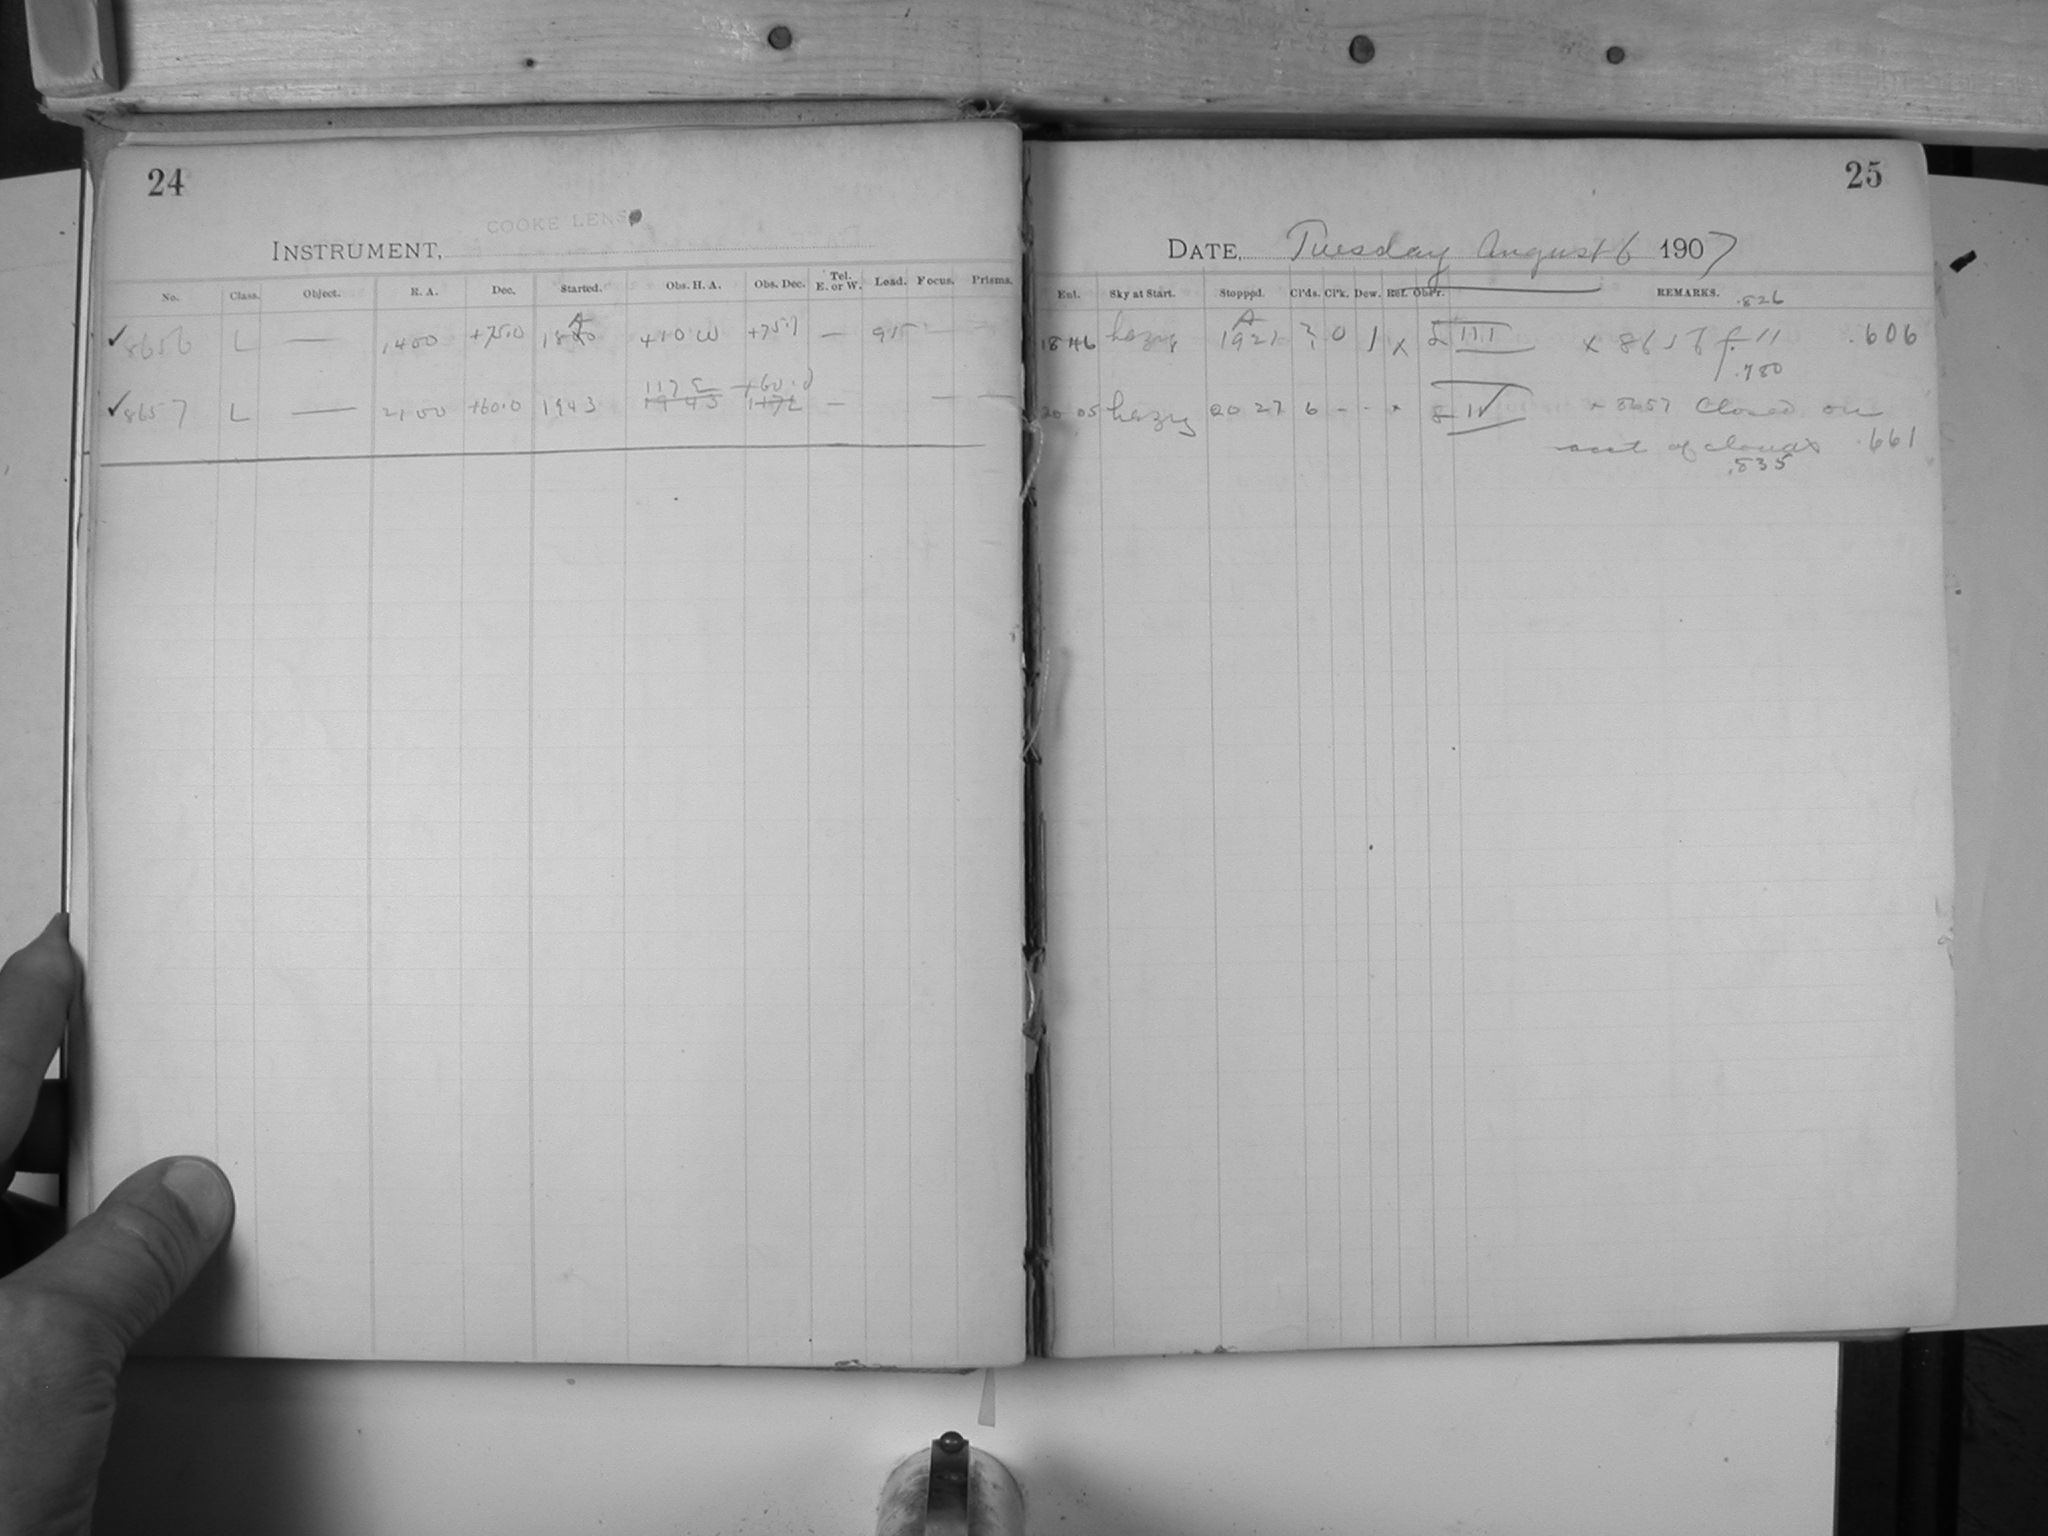 24
COOKE LENS
INSTRUMENT,
No. Class. Object. R. A. Dec. Started. Obs. H. A. Obs. Dec. Tel. E. or W. Load. Focus. Prisms.
✓ 8656 L — 1400 +75.0 +10 W +75.7 — 915 — —
1175 +60.0
✓ 8657 L — 2100 +60.0 1943 1943 1172 — — —
25
DATE, Tuesday August 6 1907
Ent. Sky at Start. Stopped. Cl'ds. Cl'k. Dew. Ref. Obs'r. REMARKS. .826
1846 hazy 1921 ? 0 1 x III x 8656 f. 11 .606
.780
20 05 hazy 20 27 6 - - x IV x 8657 Closed on
acct of clouds .661
.835